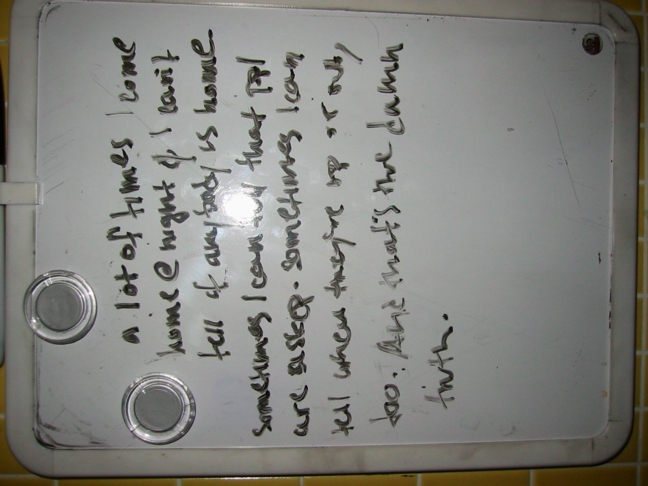 a lot of times I come
home @ night & I can't
tell if anybody is home.
sometimes I can tell that ppl
are asleep. sometimes I can
tell when they're up or out,
too. And that's the damn
truth.